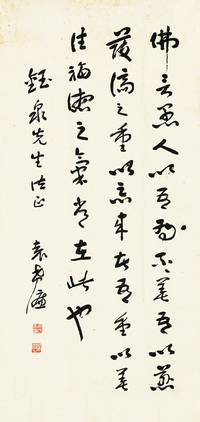 佛言愚人以吾為不善吾以慈
護濟之重以惡來者吾重以善
往福德之氣常在此也
鈺泉先生法正
袁希濂